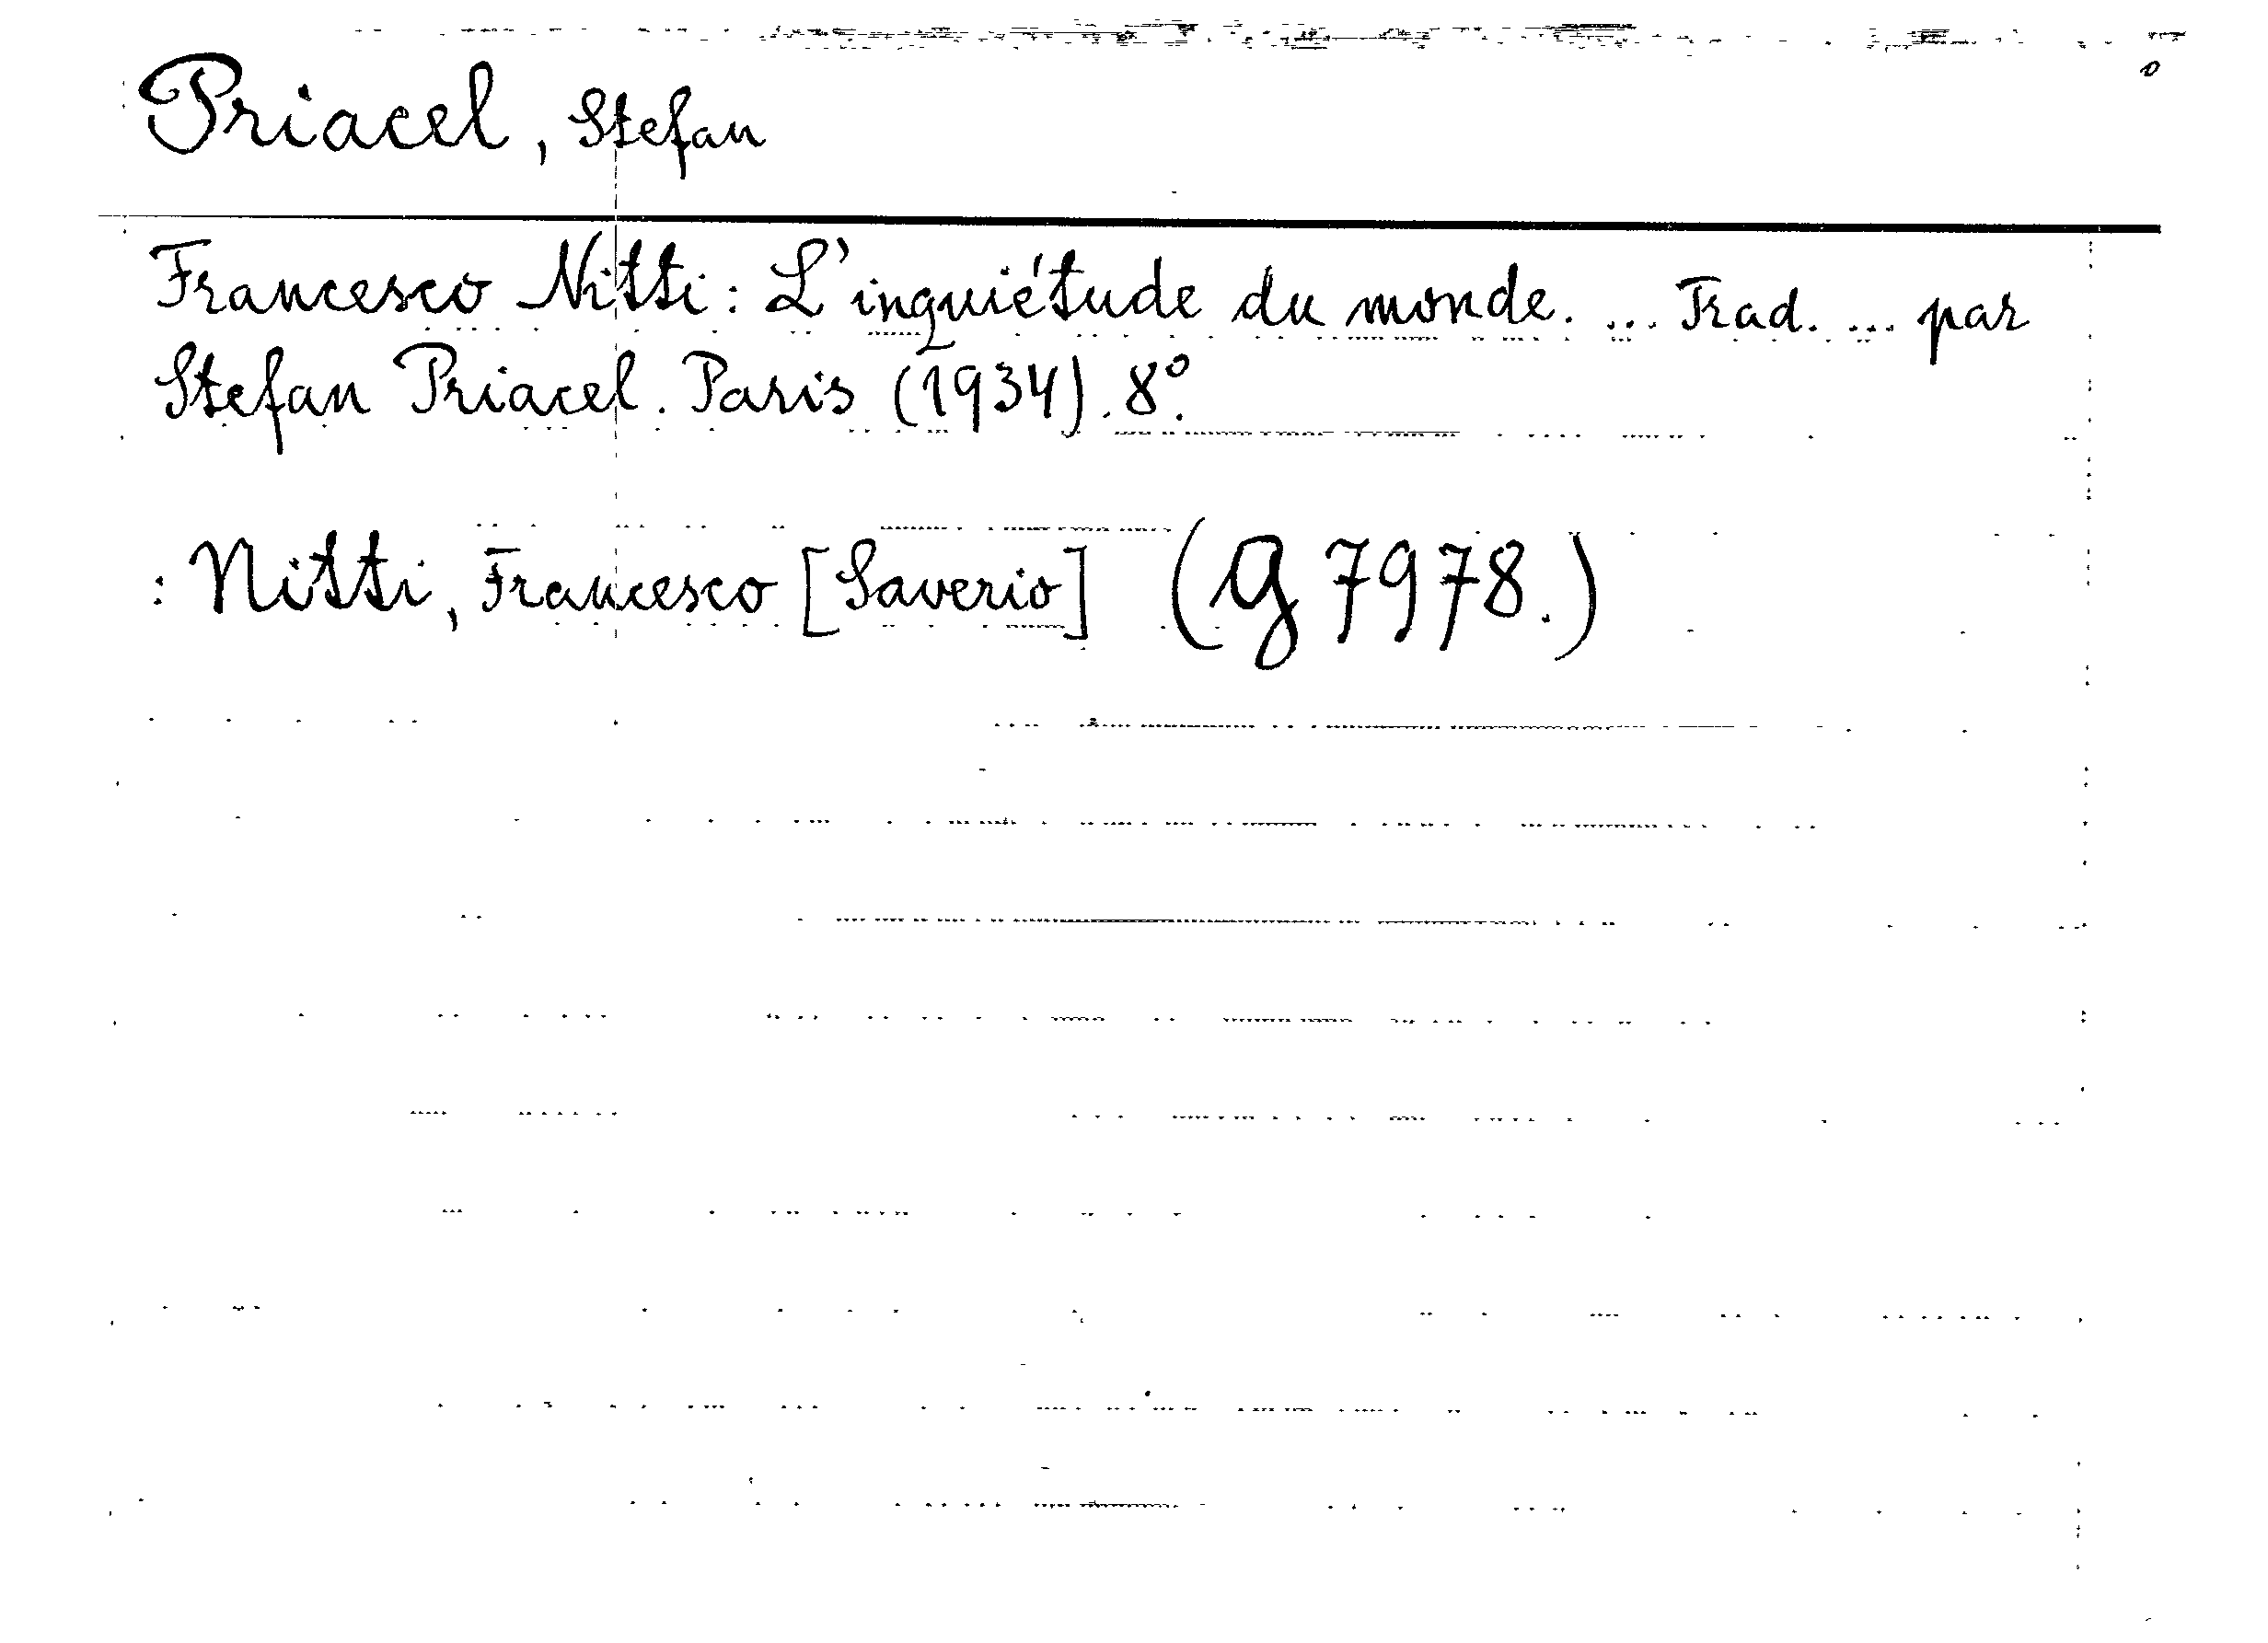 Priacel, Stefan
Francesco Nitti: L'inquiétude du monde. ... Trad. ... par
Stefan Priacel. Paris (1934). 8°.
: Nitti, Francesco [Saverio] (G 7978.)